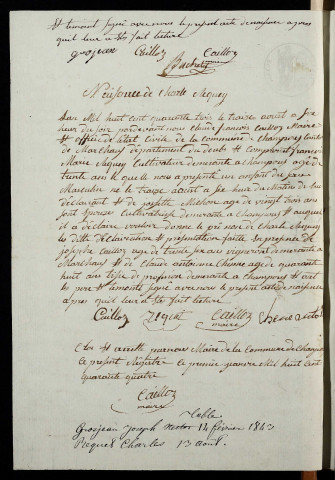 et temoint signé avec nous le present acte de naissance apres
quil leur a Ete fait lecture
grosjean Cailloz Cailloz
Bachelu maire
Naissance de Charle Requey
Lan Mil huit cent quarante trois le treize aoust a Six
heur du soir pardevant nous Claude françois Cailloz Maire
et officier de letat Civile de la commune de Champoux Canton
de Marchaux departement du doubs Est Comparut françois
Marie Cultivateur demeurante a Champoux agé de
trente ans le quele nous a presenté un enfant du sexe
Masculin ne le treize aoust a Six heur du Matin de lui
declarant et de josette Michon agé de vingt trois ans
sont Epouse Cultivatrice demeurante a Champoux et auquel
il a déclaré vouloir donné le prenom de Charle
les ditte déclaration et présentation faite En présence de
joseph Cailloz agé de trente six ans vigneron demeurante a
Marchaux et de Claude antoine agé de quarante
huit ans de profession demeurante a Champoux et ont
les pere et temoint signé avec nous le present acte de naissance
apres quil leur a Ete fait lecture
Cailloz Requet Cailloz
maire
Clos et arretté par nous Maire de la Commune de Champoux
le present Régistre le premier janvier Mil huit Cent
quarante quatre
Cailloz
maire
Table
Grosjean Joseph Nestor 14 février 1843
Requet Charles 13 aout